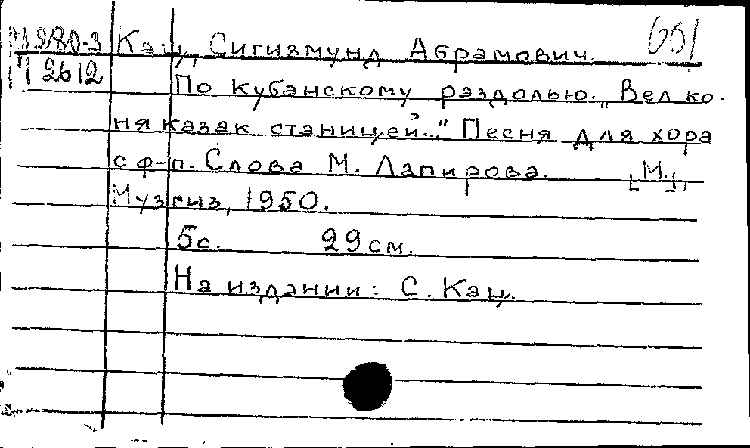 651
Кац, Сигизмунд Абрамович.
М 2612
По кубанскому раздолью. „Вел ко-
ня казак станицей..." Песня для хора
с ф-п. Слова М. Лапирова. [М.],
Музгиз, 1950.
5с. 29см.
На издании: С. Кац.